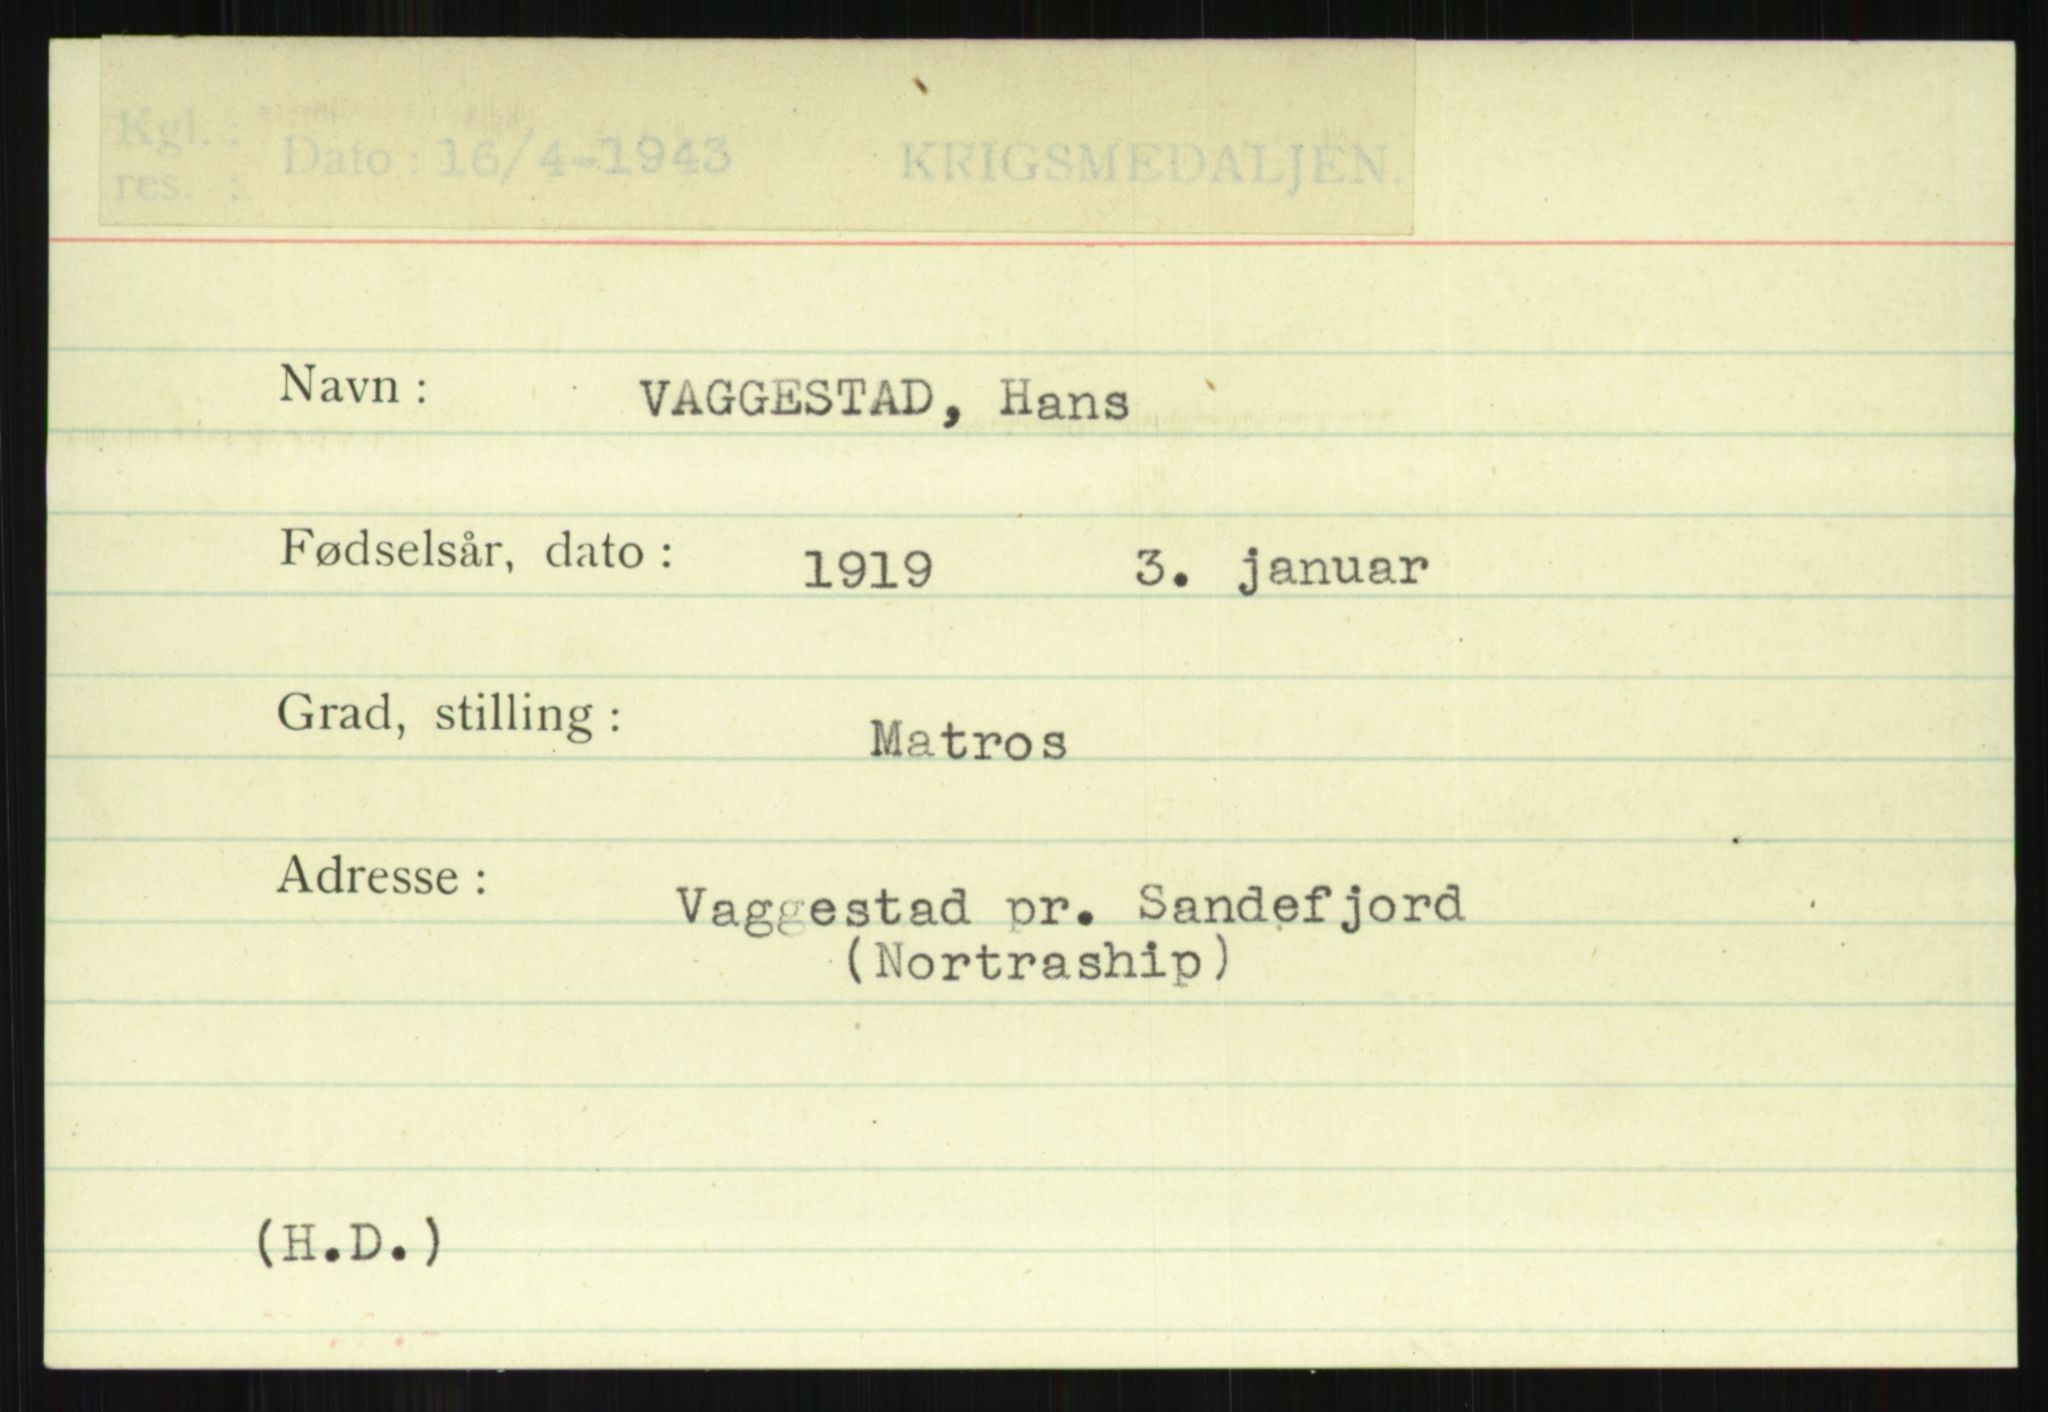 Kgl. :
res. :
Dato : 16/4-1943 KRIGSMEDALJEN.
Navn : VAGGESTAD, Hans
Fødselsår, dato : 1919 3. januar
Grad, stilling : Matros
Adresse : Vaggestad pr. Sandefjord
(Nortraship)
(H.D.)